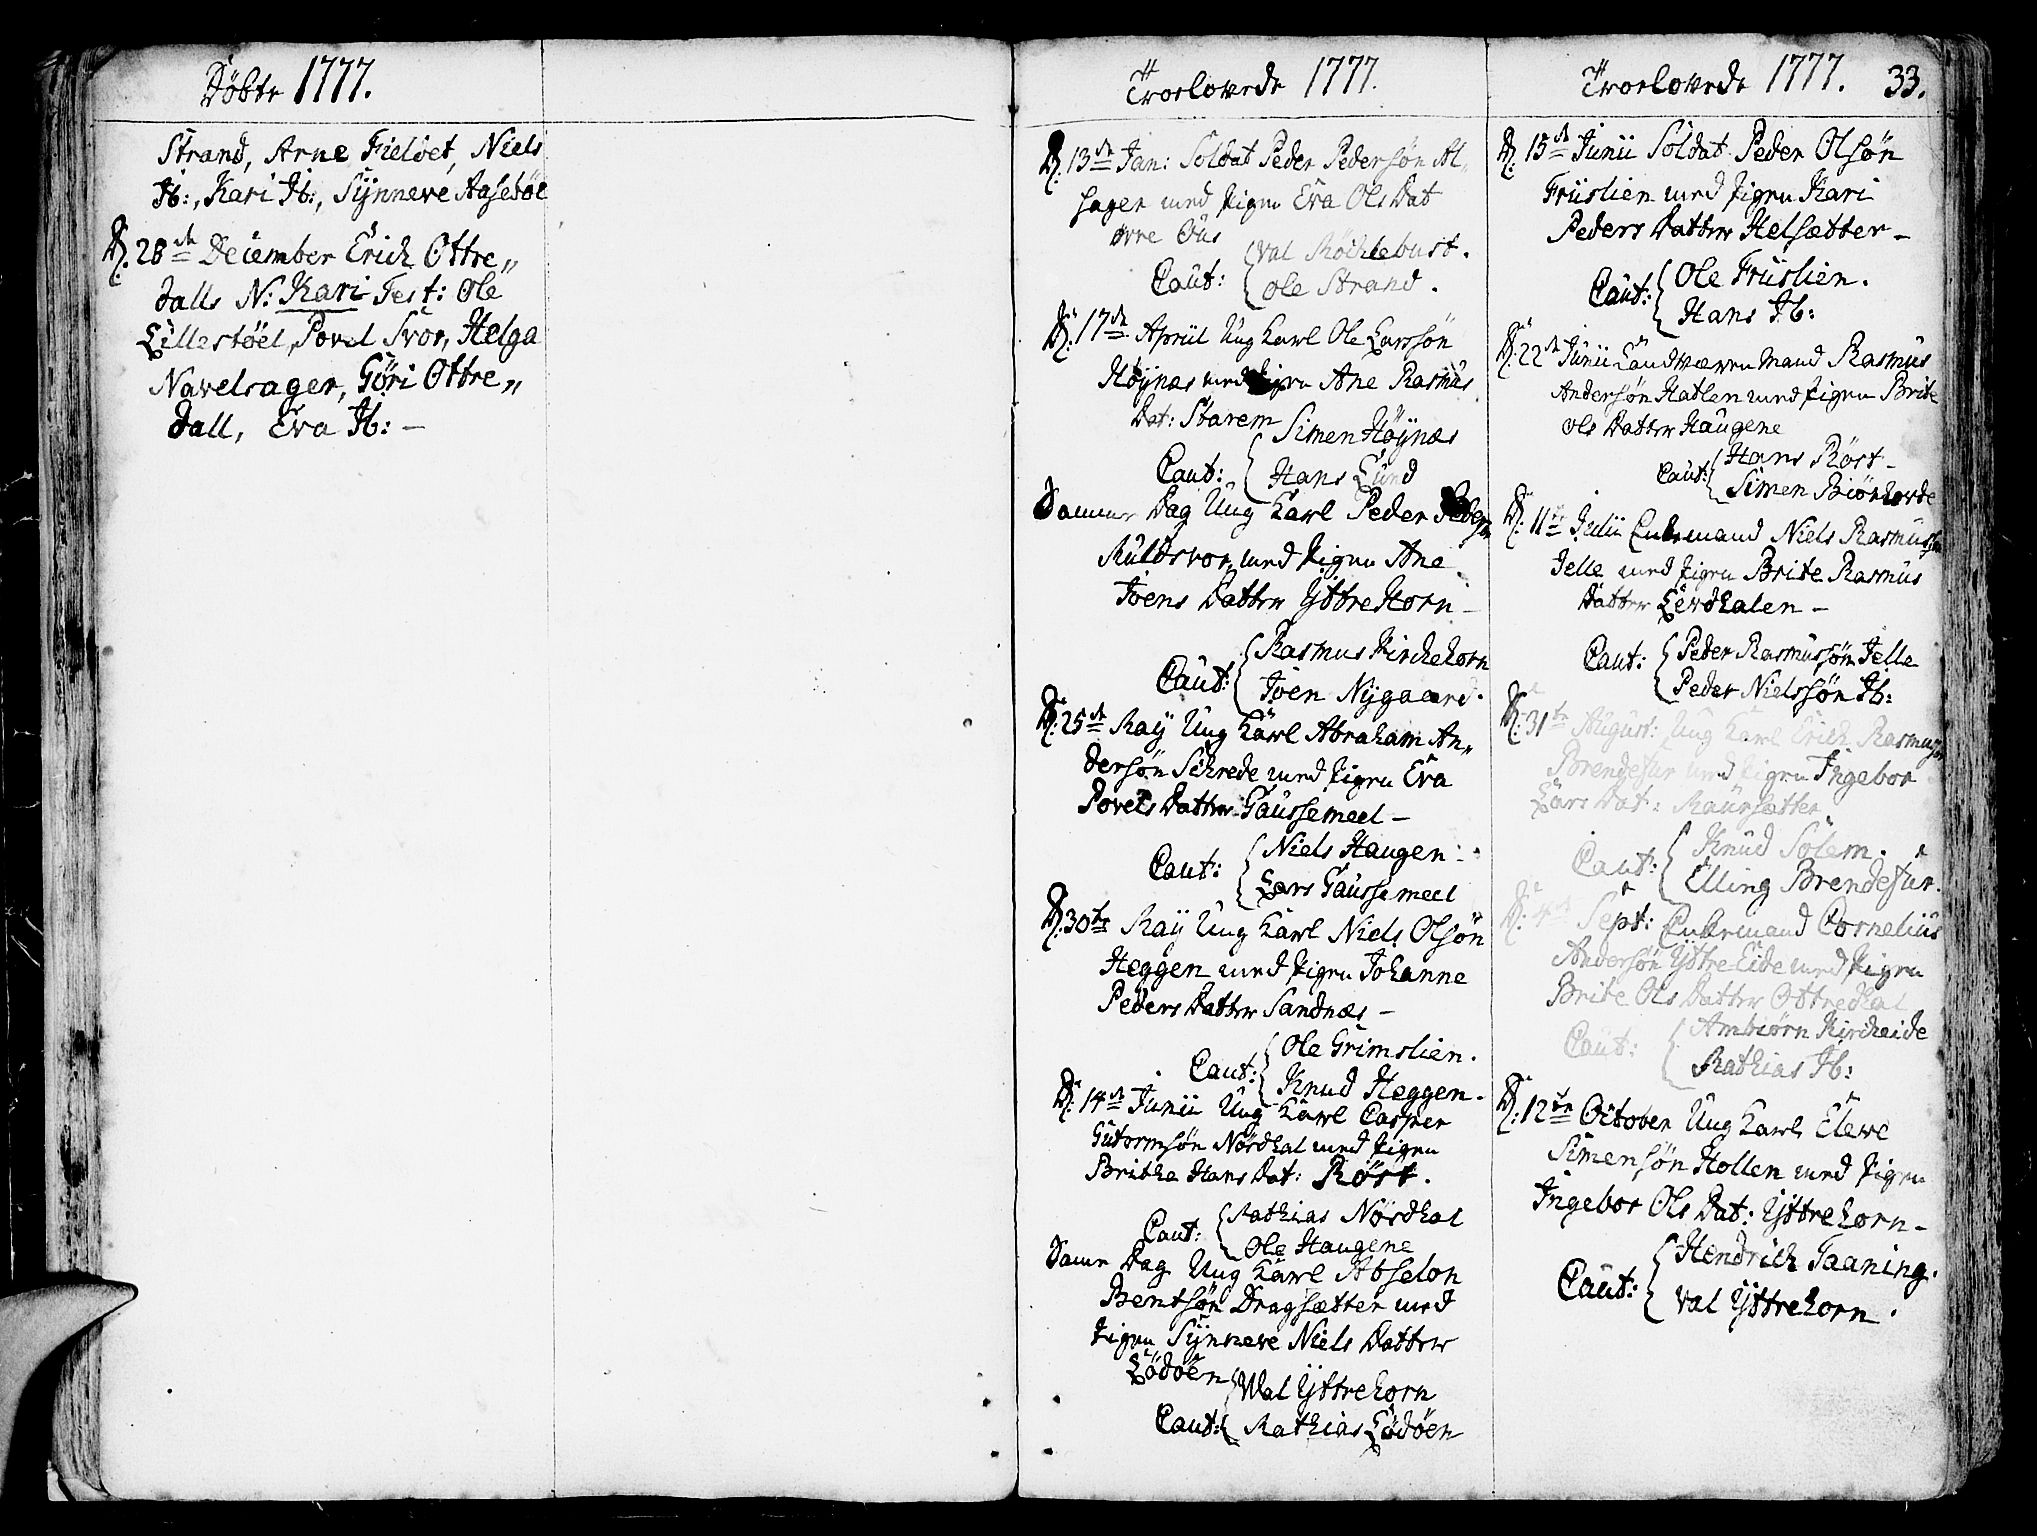 Döbte 1777.
Strand, Arne Fieldet, Niels
Jb:, Kari Jb:, Synneve Aasebøe
D: 28de December Erich Ottre„
dalls N: Kari Test: Ole
Lillestöel, Povel Svor, Helga
Navelsager, Göri Ottre„
dall, Eva Jb: —
Troelovede 1777.
D: 13de Jan: Soldat Peder Pedersøn Al„
sager med Pigen Eva Ols Dat
øvre Øus
Caut: Val Röchlebust.
Ole Strand.
D: 17de Apriil Ung Karl Ole Larssøn
Høynæs med Pigen Ane Rasmus
Dat: Starem
Caut: Simen Høynæs
Hans Lund
Samme Dag Ung Karl Peder Peders
Muldsvor, med Pigen Ane
Joens Datter Yttrehorn —
Caut: Rasmus Kirchehorn
Joen Nygaard.
D: 25de May Ung Karl Abraham An„
dersøn Schrede med Pigen Eva
Povels Datter Gaussemeel —
Caut: Niels Haugen
Lars Gaussemeel
D: 30te May Ung Karl Niels Olsøn
Heggen med Pigen Johanne
Peders Datter Sandnæs —
Caut: Ole Grimslien.
Knud Heggen.
D: 14de Junii Ung Karl Casper
Gutormsøn Nørdhal med Pigen
Britha Hans Dat: Röst.
Caut: Mathias Nørdhal
Ole Haugene
Samme Dag Ung Karl Abselon
Bentsøn Dragsætter med
Pigen Synneve Niels Datter
Lødøen
Caut: Wal Yttrehorn
Mathias Lødøen
Troelovede 1777. 33.
D: 15de Junii Soldat Peder Olsøn
Friislien med Pigen Kari
Peders Datter Helsætter —
Caut: Ole Friislien.
Hans Jb:
D: 22de Junii Landværn Mand Rasmus
Andersøn Hatlen med Pigen Brite
Ols Datter Haugene
Caut: Hans Röst —
Simen Biörhovde
D: 11te Julii Enkemand Niels Rasmussøn
Jelle med Pigen Brite Rasmus
Datter Lerdhalen —
Caut: Peder Rasmussøn Jelle
Peder Nielssøn Jb:
D: 31te August: Ung Karl Erich Rasmussøn
Brendefur med Pigen Ingebor
Lars Dat: Maursætter
Caut: Knud Solem.
Elling Brendefur.
D: 4de Sept: Enkemand Cornelius
Andersøn Yttre Eide med Pigen
Brite Ols Datter Ottredhal
Caut: Ambiörn Kircheide
Mathias Jb:
D: 12te October Ung Karl Eleve
Simensøn Hollen med Pigen
Ingebor Ols Dat: Yttrehorn —
Caut: Hendrich Taaning.
Val Yttrehorn.